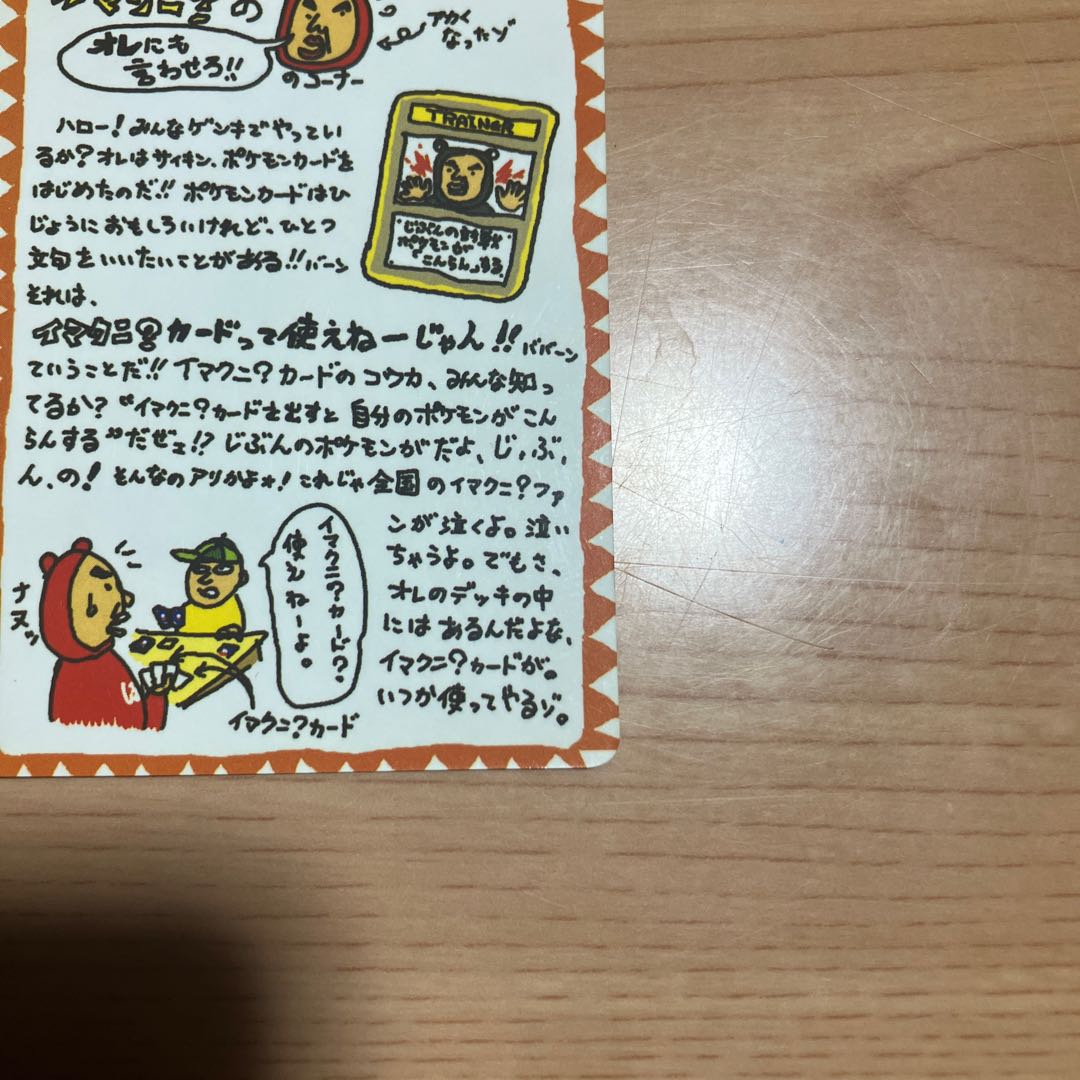 イマクニ?の
オレにも
言わせろ!!
のコーナー
アカく
なったゾ
ハロー!みんなゲンキでやってい
るか?オレはサイキン、ポケモンカードを
はじめたのだ!!ポケモンカードはひ
じょうにおもしろいけれど、ひとつ
文句をいいたいことがある!!バーン
それは、
TRAINER
じぶんの
ポケモンが
「こんらん」する。
イマクニ?カードって使えねーじゃん!!ババーン
ていうことだ!!イマクニ?カードのコウカ、みんな知っ
てるか?“イマクニ?カードを出すと自分のポケモンがこん
らんする”だぜェ!?じぶんのポケモンがだよ、じ、ぶ、
ん、の!そんなのアリかよォ!これじゃ全国のイマクニ?ファ
ンが泣くよ。泣い
ちゃうよ。でもさ、
オレのデッキの中
にはあるんだよな、
イマクニ?カードが。
いつか使ってやるゾ。
イマクニ?カード?
使えねーよ。
ナヌッ
イマクニ?カード